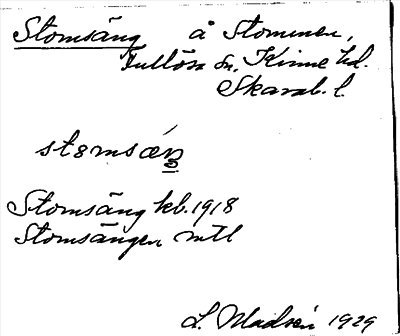 Stomsäng å Stommen,
Fullösa Sn, Kinne hd.
Skarab. l.
Stomsäng kb. 1918
Stomsängen mtl
L. Madsén 1929